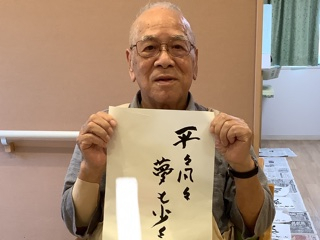 平々凡々
夢も少々